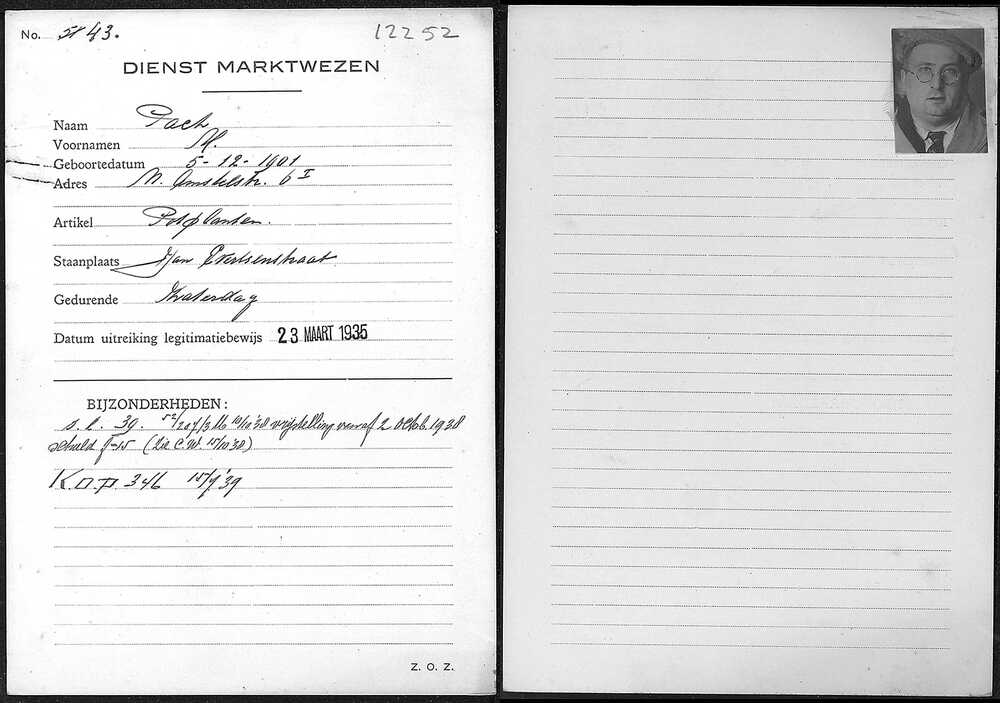 No. 43. 12252
DIENST MARKTWEZEN
Naam Pach
Voornamen M.
Geboortedatum 5-12-1901
Adres N. Amstelstr. 6 I
Artikel Potplanten.
Staanplaats Jan Evertsenstraat
Gedurende Zaterdag
Datum uitreiking legitimatiebewijs 23 MAART 1935
BIJZONDERHEDEN:
s.l. 39. vrijstelling vanaf 2 Octob. 1938
schuld (Zie C.W. 15/10 '38)
K.O.P. 346 15/9 '39
Z. O. Z.